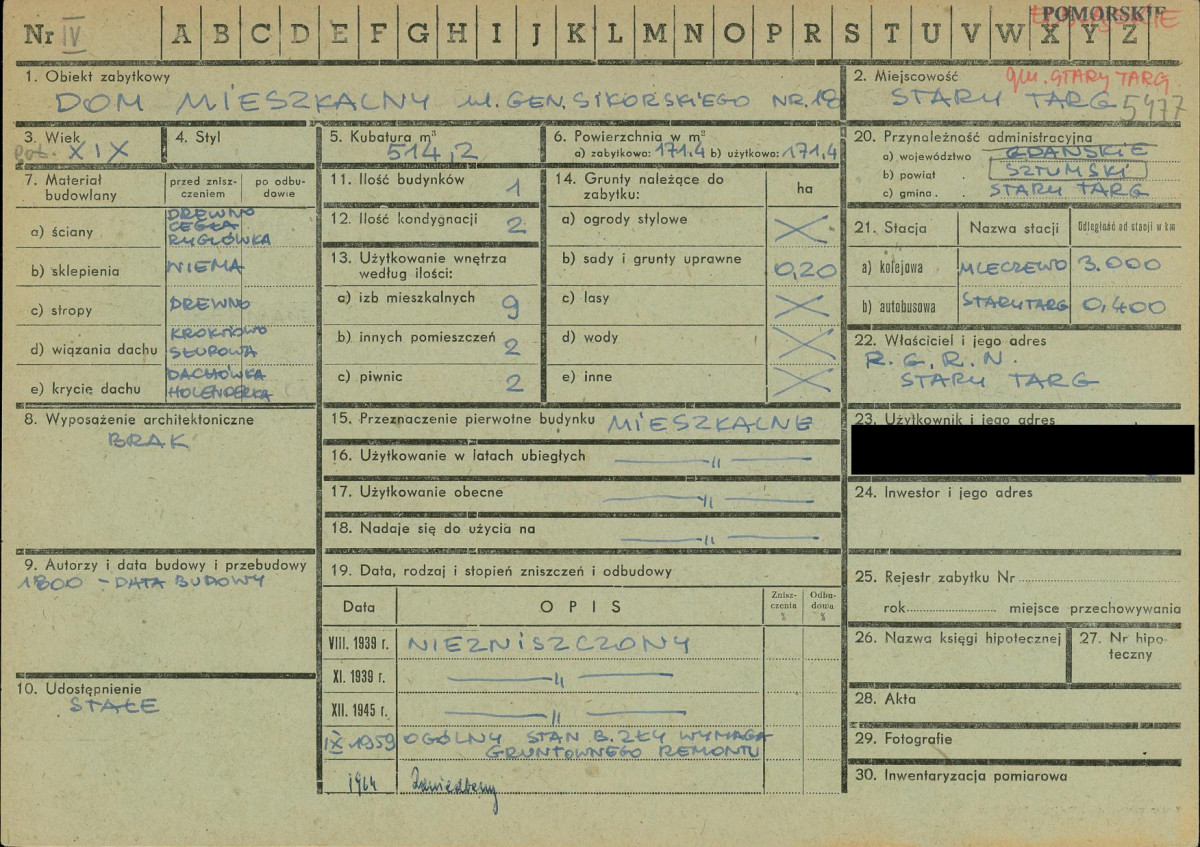 Nr IV A B C D E F G H I J K L M N O P R S T U V W X Y Z
POMORSKIE
1. Obiekt zabytkowy
DOM MIESZKALNY ul. GEN. SIKORSKIEGO NR. 18
2. Miejscowość
gm. STARY TARG
STARY TARG 5477
3. Wiek
poł. XIX
4. Styl
5. Kubatura m³
514,2
6. Powierzchnia w m²
a) zabytkowa: 171.4 b) użytkowa: 171,4
20. Przynależność administracyjna
a) województwo GDAŃSKIE
b) powiat SZTUMSKI
c) gmina STARY TARG
7. Materiał budowlany
przed zniszczeniem
po odbudowie
a) ściany DREWNO
CEGŁA
RYGLÓWKA
b) sklepienia NIEMA
c) stropy DREWNO
d) wiązania dachu KROKWIOWO
SŁUPOWA
e) krycie dachu DACHÓWKA
HOLENDERKA
11. Ilość budynków 1
12. Ilość kondygnacji 2
13. Użytkowanie wnętrza
według ilości:
a) izb mieszkalnych 9
b) innych pomieszczeń 2
c) piwnic 2
14. Grunty należące do
zabytku:
ha
a) ogrody stylowe
b) sady i grunty uprawne 0,20
c) lasy
d) wody
e) inne
21. Stacja Nazwa stacji Odległość od stacji w km
a) kolejowa MLECZEWO 3.000
b) autobusowa STARY TARG 0,400
22. Właściciel i jego adres
R. G. R. N.
STARY TARG
8. Wyposażenie architektoniczne
BRAK
15. Przeznaczenie pierwotne budynku MIESZKALNE
16. Użytkowanie w latach ubiegłych — " —
17. Użytkowanie obecne — " —
18. Nadaje się do użycia na — " —
23. Użytkownik i jego adres
24. Inwestor i jego adres
9. Autorzy i data budowy i przebudowy
1800 - DATA BUDOWY
19. Data, rodzaj i stopień zniszczeń i odbudowy
Data OPIS Zniszczenia % Odbudowa %
VIII. 1939 r. NIEZNISZCZONY
XI. 1939 r. — " —
XII. 1945 r. — " —
IX 1959 OGÓLNY STAN B. ZŁY WYMAGA
GRUNTOWNEGO REMONTU
1964 Zaniedbany
10. Udostępnienie
STAŁE
25. Rejestr zabytku Nr
rok miejsce przechowywania
26. Nazwa księgi hipotecznej
27. Nr hipoteczny
28. Akta
29. Fotografie
30. Inwentaryzacja pomiarowa